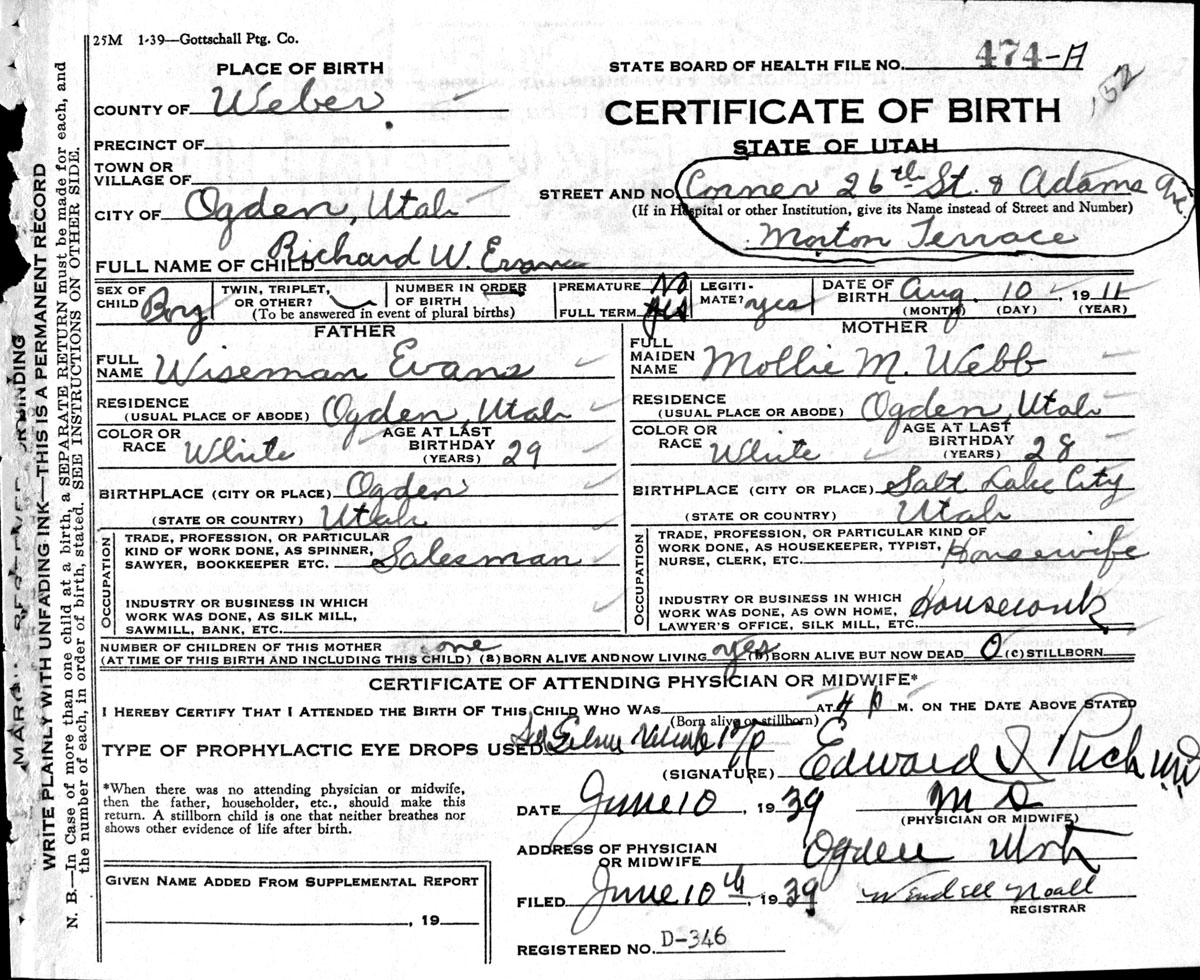 25M 1-39—Gottschall Ptg. Co.
PLACE OF BIRTH
STATE BOARD OF HEALTH FILE NO. 474-A
COUNTY OF Weber
CERTIFICATE OF BIRTH
STATE OF UTAH
PRECINCT OF
TOWN OR
VILLAGE OF
STREET AND NO. Corner 26th St. & Adams Ave.
(If in Hospital or other Institution, give its Name instead of Street and Number)
Morton Terrace
CITY OF Ogden, Utah
FULL NAME OF CHILD Richard W. Evans
SEX OF CHILD Boy
TWIN, TRIPLET, OR OTHER?
NUMBER IN ORDER OF BIRTH
(To be answered in event of plural births)
PREMATURE No
FULL TERM yes
LEGITIMATE? yes
DATE OF BIRTH Aug. 10, 1911
(MONTH) (DAY) (YEAR)
FATHER
FULL NAME Wiseman Evans
RESIDENCE
(USUAL PLACE OF ABODE) Ogden, Utah
COLOR OR RACE White
AGE AT LAST BIRTHDAY (YEARS) 29
BIRTHPLACE (CITY OR PLACE) Ogden
(STATE OR COUNTRY) Utah
OCCUPATION
TRADE, PROFESSION, OR PARTICULAR
KIND OF WORK DONE, AS SPINNER,
SAWYER, BOOKKEEPER ETC. Salesman
INDUSTRY OR BUSINESS IN WHICH
WORK WAS DONE, AS SILK MILL,
SAWMILL, BANK, ETC.
MOTHER
FULL MAIDEN NAME Mollie M. Webb
RESIDENCE
(USUAL PLACE OR ABODE) Ogden, Utah
COLOR OR RACE White
AGE AT LAST BIRTHDAY (YEARS) 28
BIRTHPLACE (CITY OR PLACE) Salt Lake City
(STATE OR COUNTRY) Utah
OCCUPATION
TRADE, PROFESSION, OR PARTICULAR KIND OF
WORK DONE, AS HOUSEKEEPER, TYPIST,
NURSE, CLERK, ETC. Housewife
INDUSTRY OR BUSINESS IN WHICH
WORK WAS DONE, AS OWN HOME,
LAWYER'S OFFICE, SILK MILL, ETC. Housework
NUMBER OF CHILDREN OF THIS MOTHER one
(AT TIME OF THIS BIRTH AND INCLUDING THIS CHILD) (a) BORN ALIVE AND NOW LIVING yes (b) BORN ALIVE BUT NOW DEAD 0 (c) STILLBORN
CERTIFICATE OF ATTENDING PHYSICIAN OR MIDWIFE*
I HEREBY CERTIFY THAT I ATTENDED THE BIRTH OF THIS CHILD WHO WAS AT 4 P M. ON THE DATE ABOVE STATED
(Born alive or stillborn)
TYPE OF PROPHYLACTIC EYE DROPS USED
(SIGNATURE) Edward I Rich MD
*When there was no attending physician or midwife,
then the father, householder, etc., should make this
return. A stillborn child is one that neither breathes nor
shows other evidence of life after birth.
DATE June 10, 1939 M D
(PHYSICIAN OR MIDWIFE)
ADDRESS OF PHYSICIAN
OR MIDWIFE Ogden Utah
GIVEN NAME ADDED FROM SUPPLEMENTAL REPORT
, 19
FILED June 10th, 1939 Wendell Noall
REGISTRAR
REGISTERED NO. D-346
WRITE PLAINLY WITH UNFADING INK—THIS IS A PERMANENT RECORD
N. B.—In Case of more than one child at a birth, a SEPARATE RETURN must be made for each, and
the number of each, in order of birth, stated. SEE INSTRUCTIONS ON OTHER SIDE.